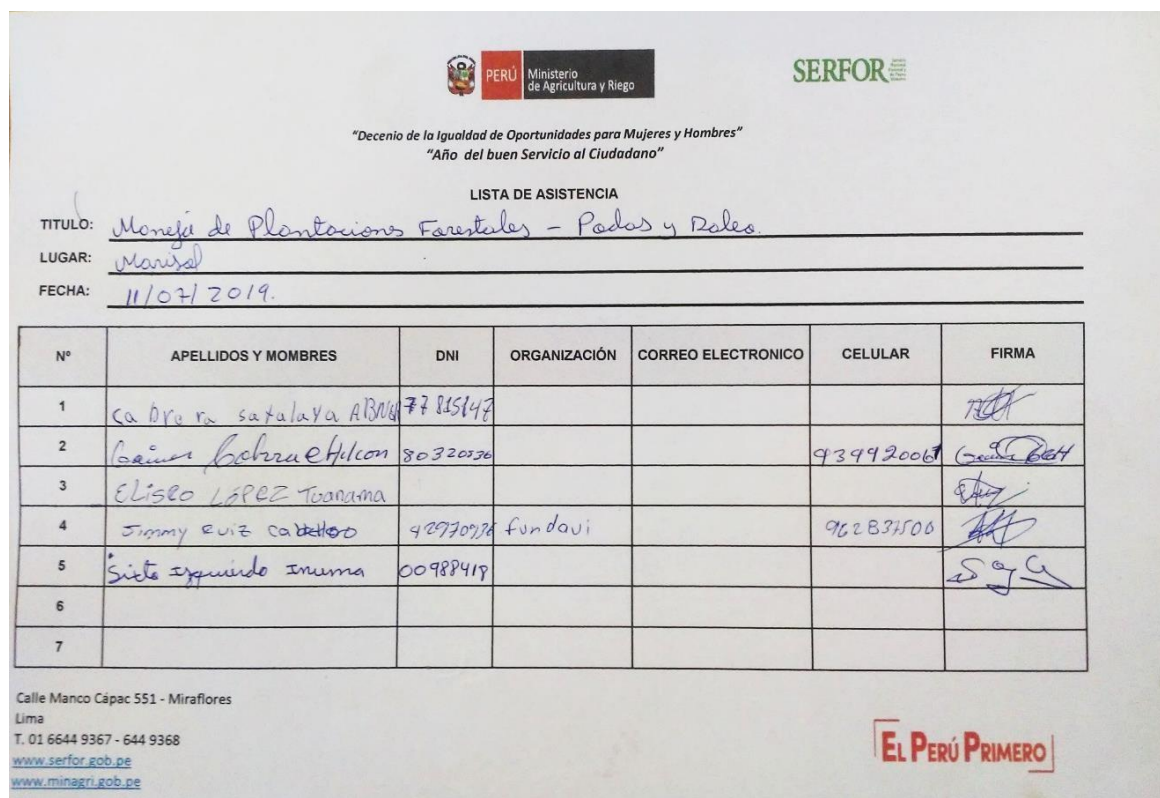 PERÚ Ministerio de Agricultura y Riego
SERFOR
"Decenio de la Igualdad de Oportunidades para Mujeres y Hombres"
"Año del buen Servicio al Ciudadano"
LISTA DE ASISTENCIA
TITULO: Manejo de Plantaciones Forestales - Podas y Raleo.
LUGAR: Marisol
FECHA: 11/07/2019.
Nº APELLIDOS Y MOMBRES DNI ORGANIZACIÓN CORREO ELECTRONICO CELULAR FIRMA
1 Cabrera satalaya 77815147
2 80320536 939920061
3 ELISEO LÓPEZ Tuanama
4 Jimmy Ruiz 42970936 fundavi 962837500
5 Sixto Izquierdo Inuma 00988418
6
7
Calle Manco Cápac 551 - Miraflores
Lima
T. 01 6644 9367 - 644 9368
www.serfor.gob.pe
www.minagri.gob.pe
EL PERÚ PRIMERO